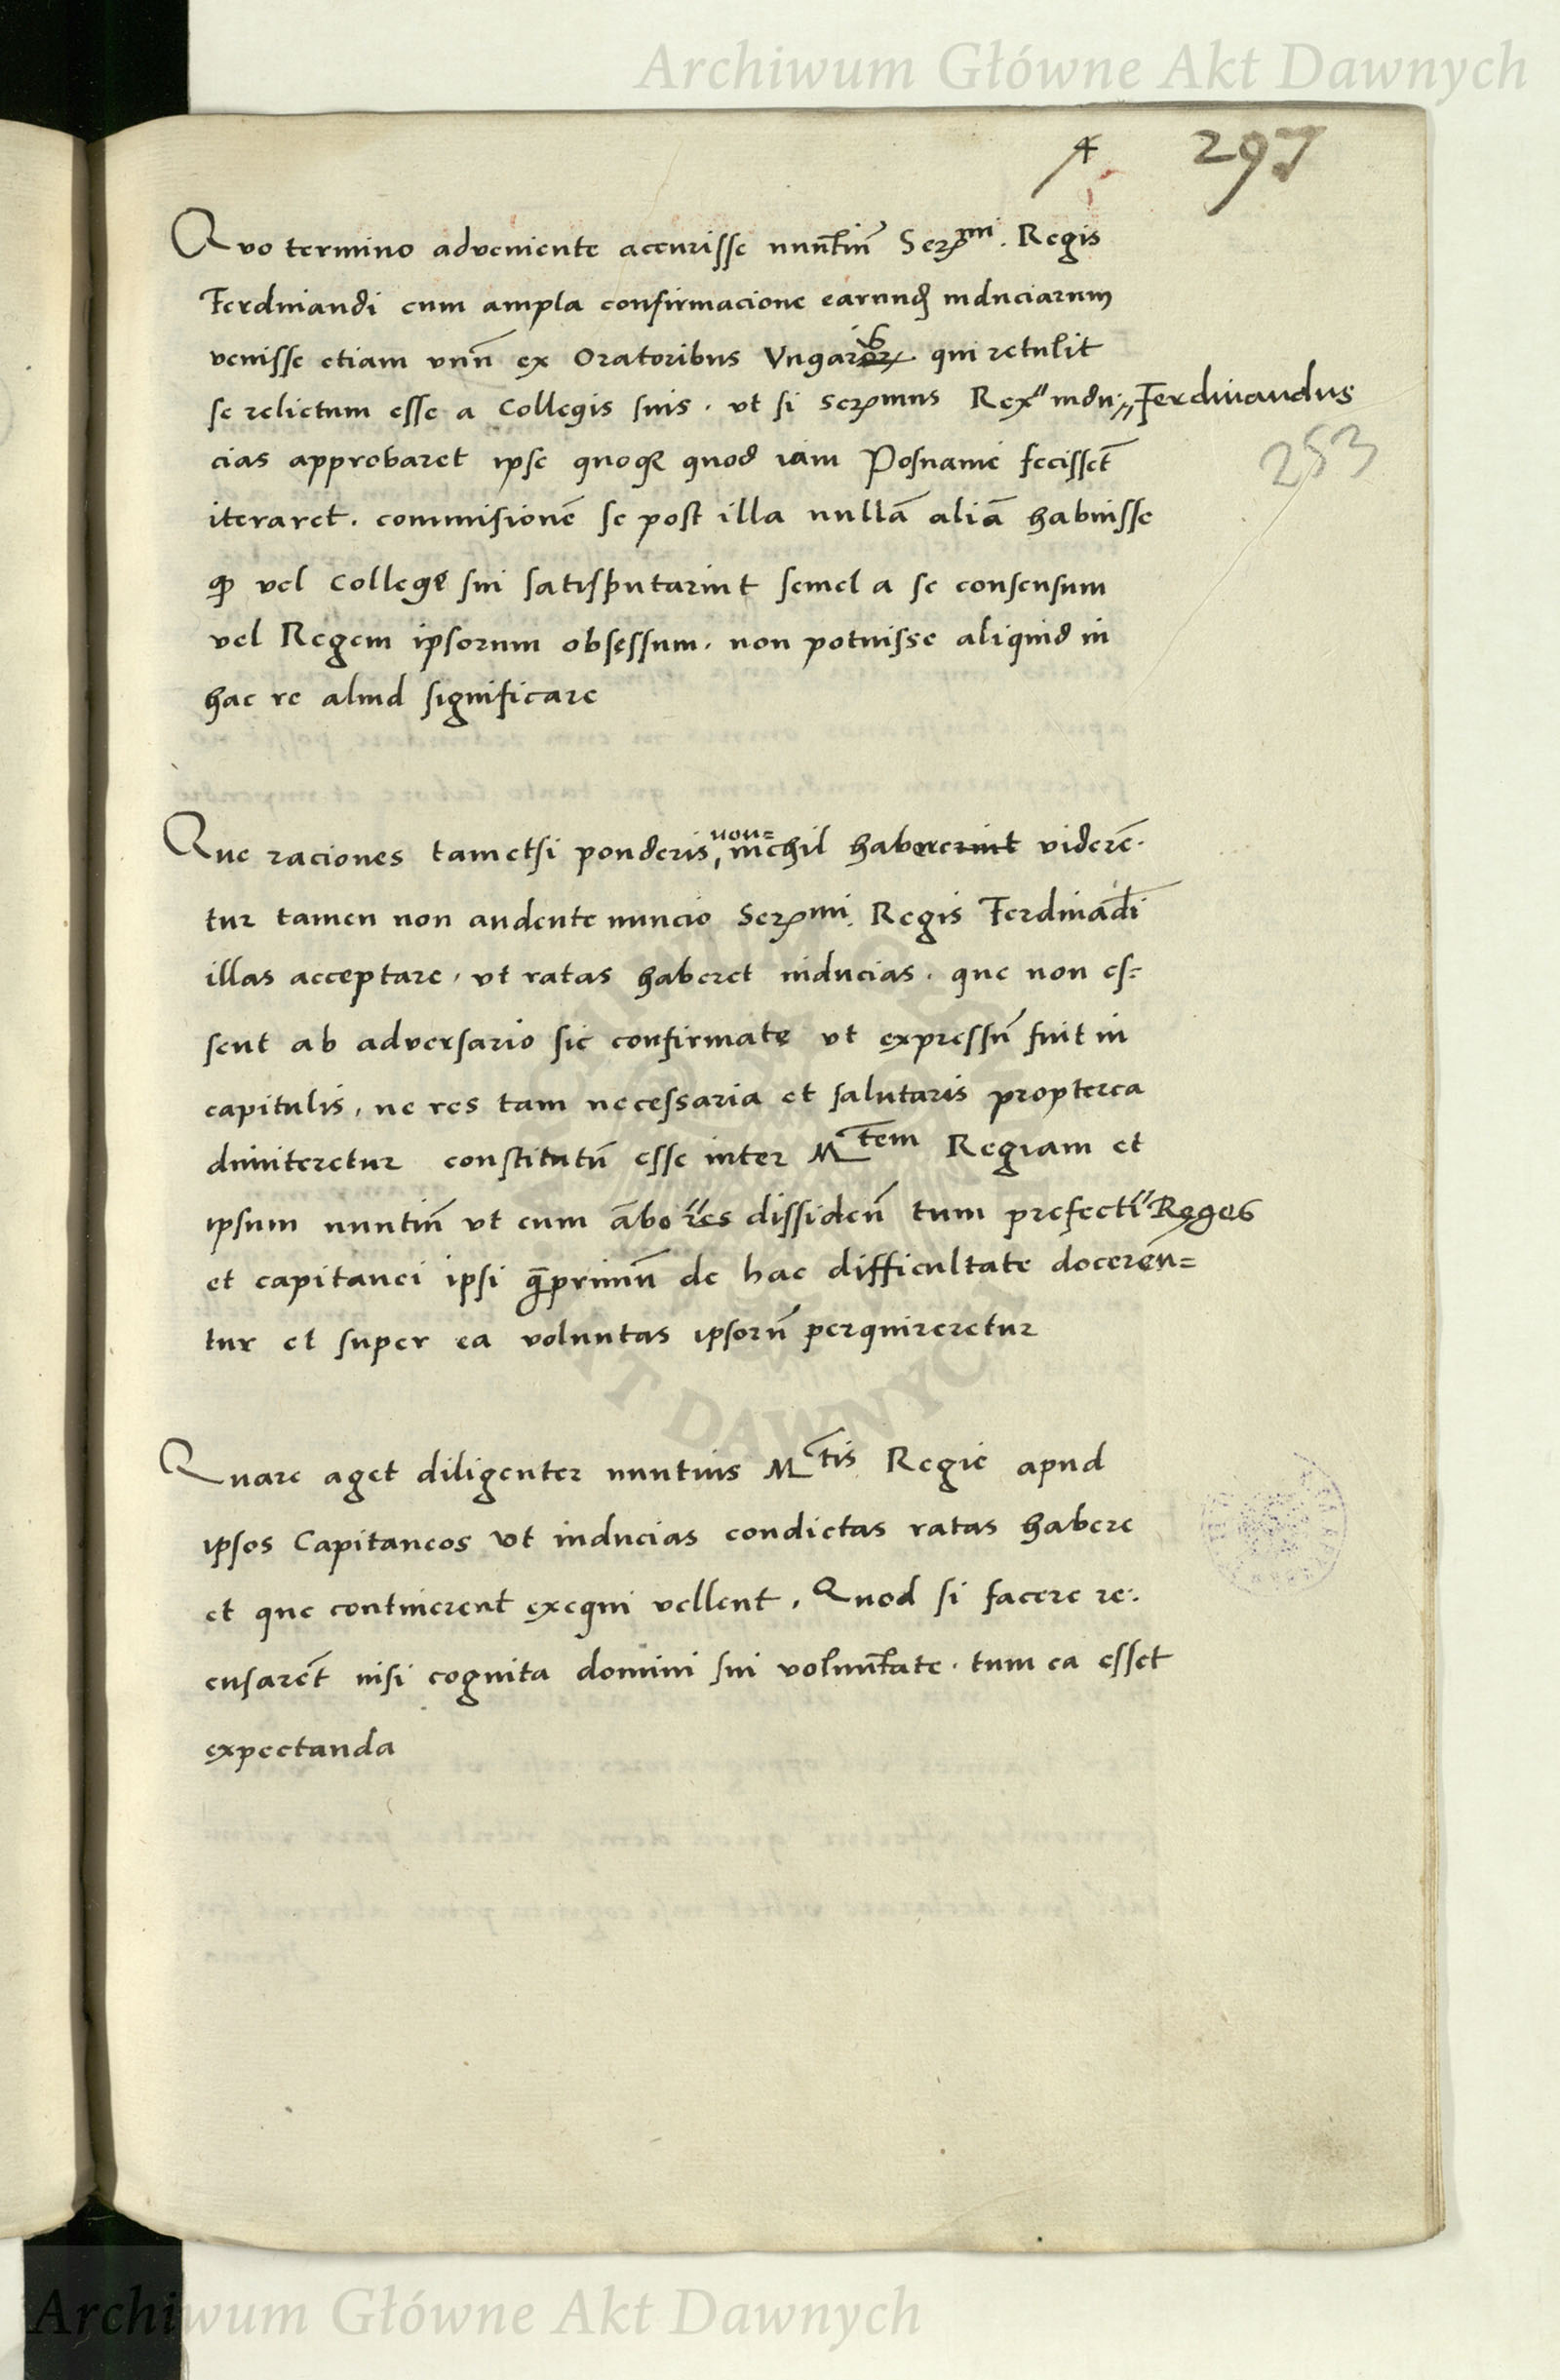 Archiwum Główne Akt Dawnych
A 297
Quo termino adveniente accurisse nuntiū Serᵐⁱ. Regis
Ferdinandi cum ampla confirmacione earundꝫ induciarum
venisse etiam unū ex Oratoribus Vngaris qui retulit
se relictum esse a Collegis suis. ut si serᵐus Rex " indu: " Ferdinandus
253
cias approbaret ipse quoqꝫ quod iam Posnanie fecisset
iteraret. commisionē se post illa nullā aliā habuisse
qp vel Collegę sui satis putarint semel a se consensum
vel Regem ipsorum obsessum. non potuisse aliquid in
hac re aliud significare
Que raciones tametsi ponderis, non= nichil habere viderē.
tur tamen non audente nuncio Serᵐⁱ. Regis Ferdinādi
illas acceptare, ut ratas haberet inducias. que non es=
sent ab adversario sic confirmatę ut expressū fuit in
capitulis, ne res tam necessaria et salutaris propterea
dimiteretur constitutū esse inter Mᵗᵉᵐ Regiam et
ipsum nuntiū ut cum ābo " res dissidēn tum prefecti " Reges
et capitanei ipsi q̄primū de hac difficultate docerēn=
tur et super ea voluntas ipsorū perquireretur
Quare aget diligenter nuntius Mᵗⁱˢ Regie apud
ipsos Capitaneos ut inducias condictas ratas habere
et que continerent exequi vellent, Quod si facere re:
cusarēt nisi cognita domini sui voluntate. tum ea esset
expectanda
ARCHIWUM AKT DAWNYCH
Archiwum Główne Akt Dawnych